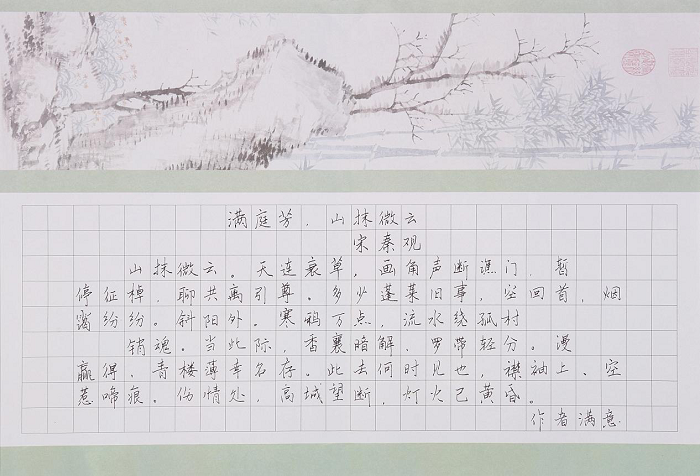 满庭芳．山抹微云
宋秦观
山抹微云。天连衰草，画角声断谯门．暂
停征棹，聊共离引尊。多少蓬莱旧事，空回首，烟
霭纷纷。斜阳外。寒鸦万点，流水绕孤村
销魂。当此际，香囊暗解．罗带轻分。漫
赢得、青楼薄幸名存。此去何时见也，襟袖上、空
惹啼痕。伤情处，高城望断，灯火已黄昏。
作者满意